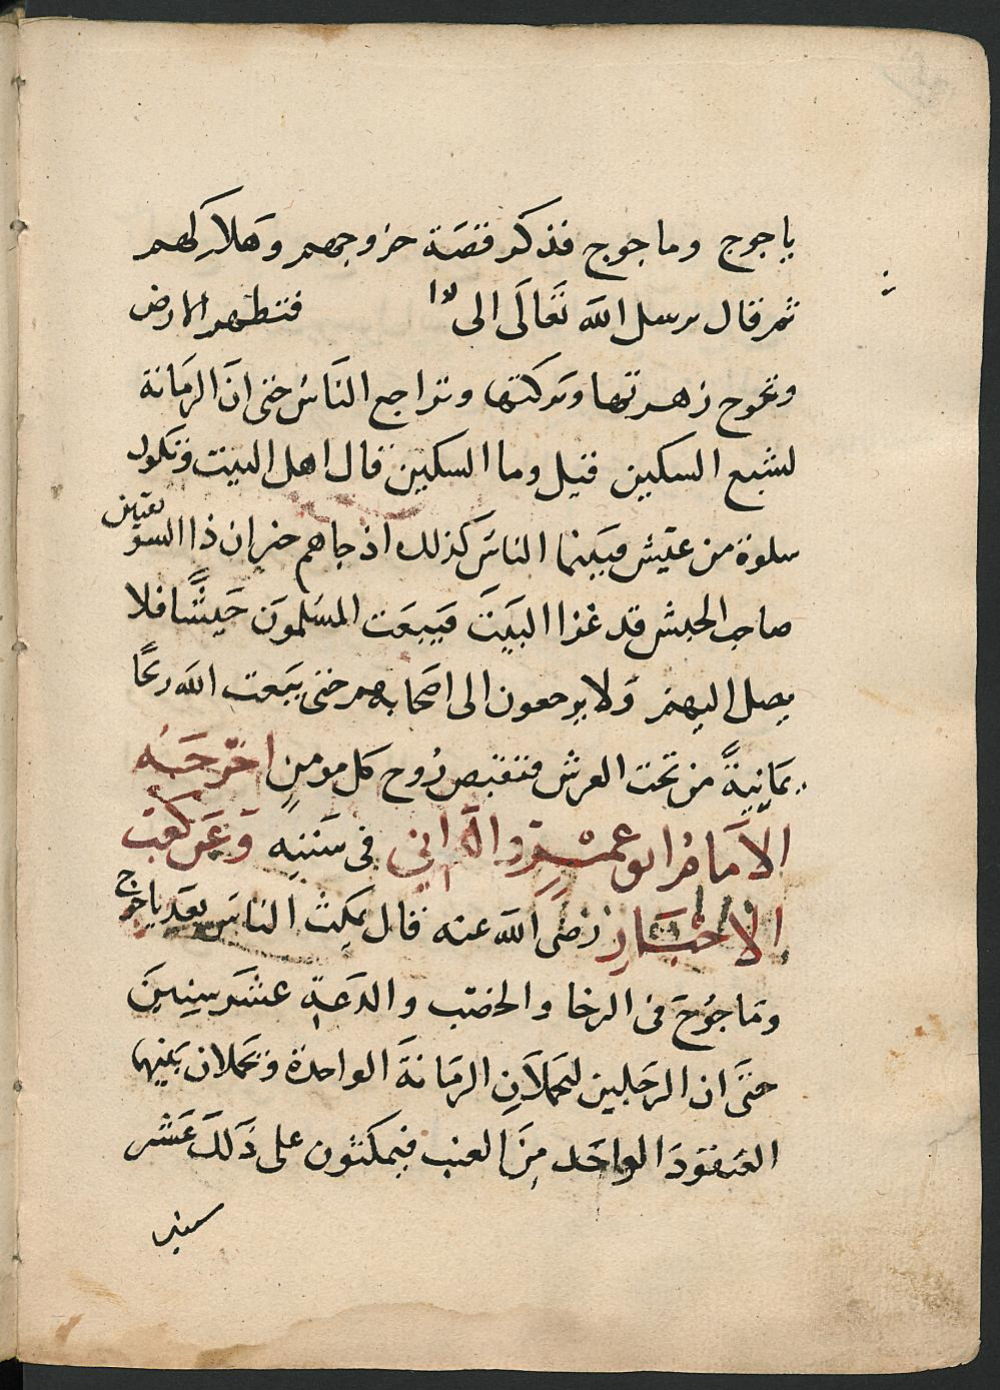 ياجوج وماجوج فذكر قصة خروجهم وهلاكهم
ثم قال يرسل الله تعالى الى فتطهر الارض
وتخرج زهرتها وبركتها وتراجع الناس حتى ان الرمانة
لتشبع السكين قيل وما السكين قال اهل البيت وتكون
سلوة من عيش فبينما الناس كذلك اذ جاهم خبر ان ذا السويقتين
صاحب الحبش قد غزا البيت فيبعت المسلمون جيشا فلا
يصل اليهم ولا يرجعون الى اصحابهم حتى يبعت الله ريحا
يمانية من تحت العرش فتقبض روح كل مومن اخرجه
الامام ابو عمرو الداني في سننه وعن كعب
الاحبار رضى الله عنه قال يمكث الناس بعد ياجوج
وماجوج في الرخا والخصب والدعة عشر سنين
حتى ان الرجلين ليحملان الرمانة الواحدة ويحملان بينهما
العنقود الواحد من العنب فيمكثون على ذلك عشر
سنين